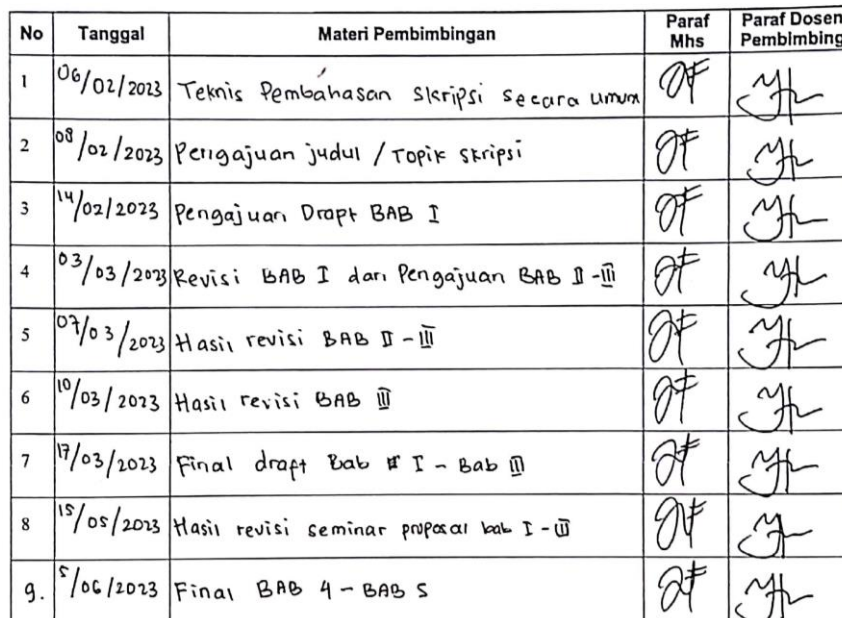 No Tanggal Materi Pembimbingan Paraf Mhs Paraf Dosen Pembimbing
1 06/02/2023 Teknis Pembahasan Skripsi secara umum
2 08/02/2023 Pengajuan judul / Topik skripsi
3 14/02/2023 Pengajuan Drapt BAB I
4 03/03/2023 Revisi BAB I dan Pengajuan BAB II - III
5 07/03/2023 Hasil revisi BAB II - III
6 10/03/2023 Hasil revisi BAB III
7 17/03/2023 Final drapt Bab I - Bab III
8 15/05/2023 Hasil revisi seminar proposal bab I - III
9. 5/06/2023 Final BAB 4 - BAB 5